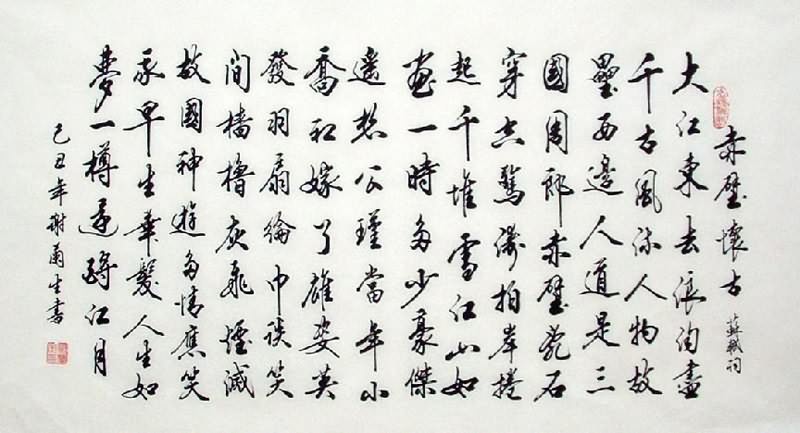 赤壁懷古 蘇軾詞
大江東去浪淘盡
千古風流人物故
壘西邊人道是三
國周郎赤壁亂石
穿空驚濤拍岸捲
起千堆雪江山如
畫一時多少豪傑
遙想公瑾當年小
喬初嫁了雄姿英
發羽扇綸巾談笑
間檣櫓灰飛煙滅
故國神遊多情應笑
我早生華髮人生如
夢一樽還酹江月
己丑年謝生書